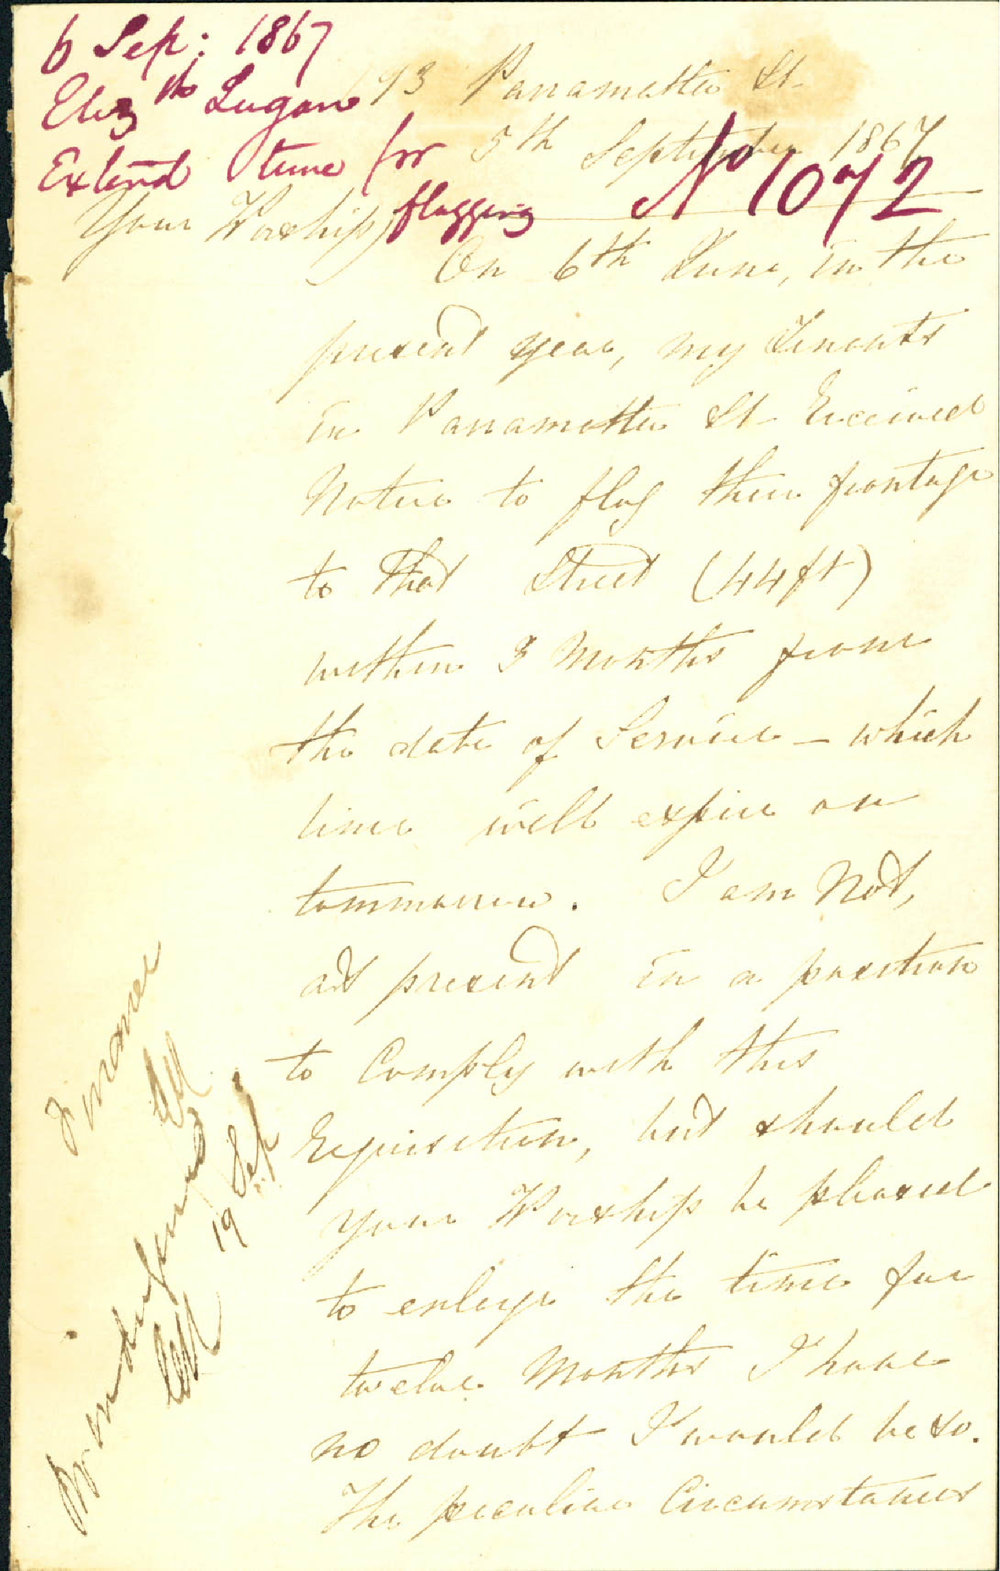 6 Sep: 1867
Elizth Dugan
Extend time for
flagging
No 1072
73 Parramatta St.
5th September 1867
Your Worship,
On 6th June, in the
present year, my Tenants
in Parramatta St. Received
Notice to flag their frontage
to that Street (44ft)
within 3 Months from
the date of Service – which
time will expire on
tommorrow. I am Not,
at present in a position
to Comply with this
Requisition, but should
your Worship be pleased
to enlarge the time for
twelve Months I have
no doubt I would be so.
The peculiar Circumstances
19 Sep